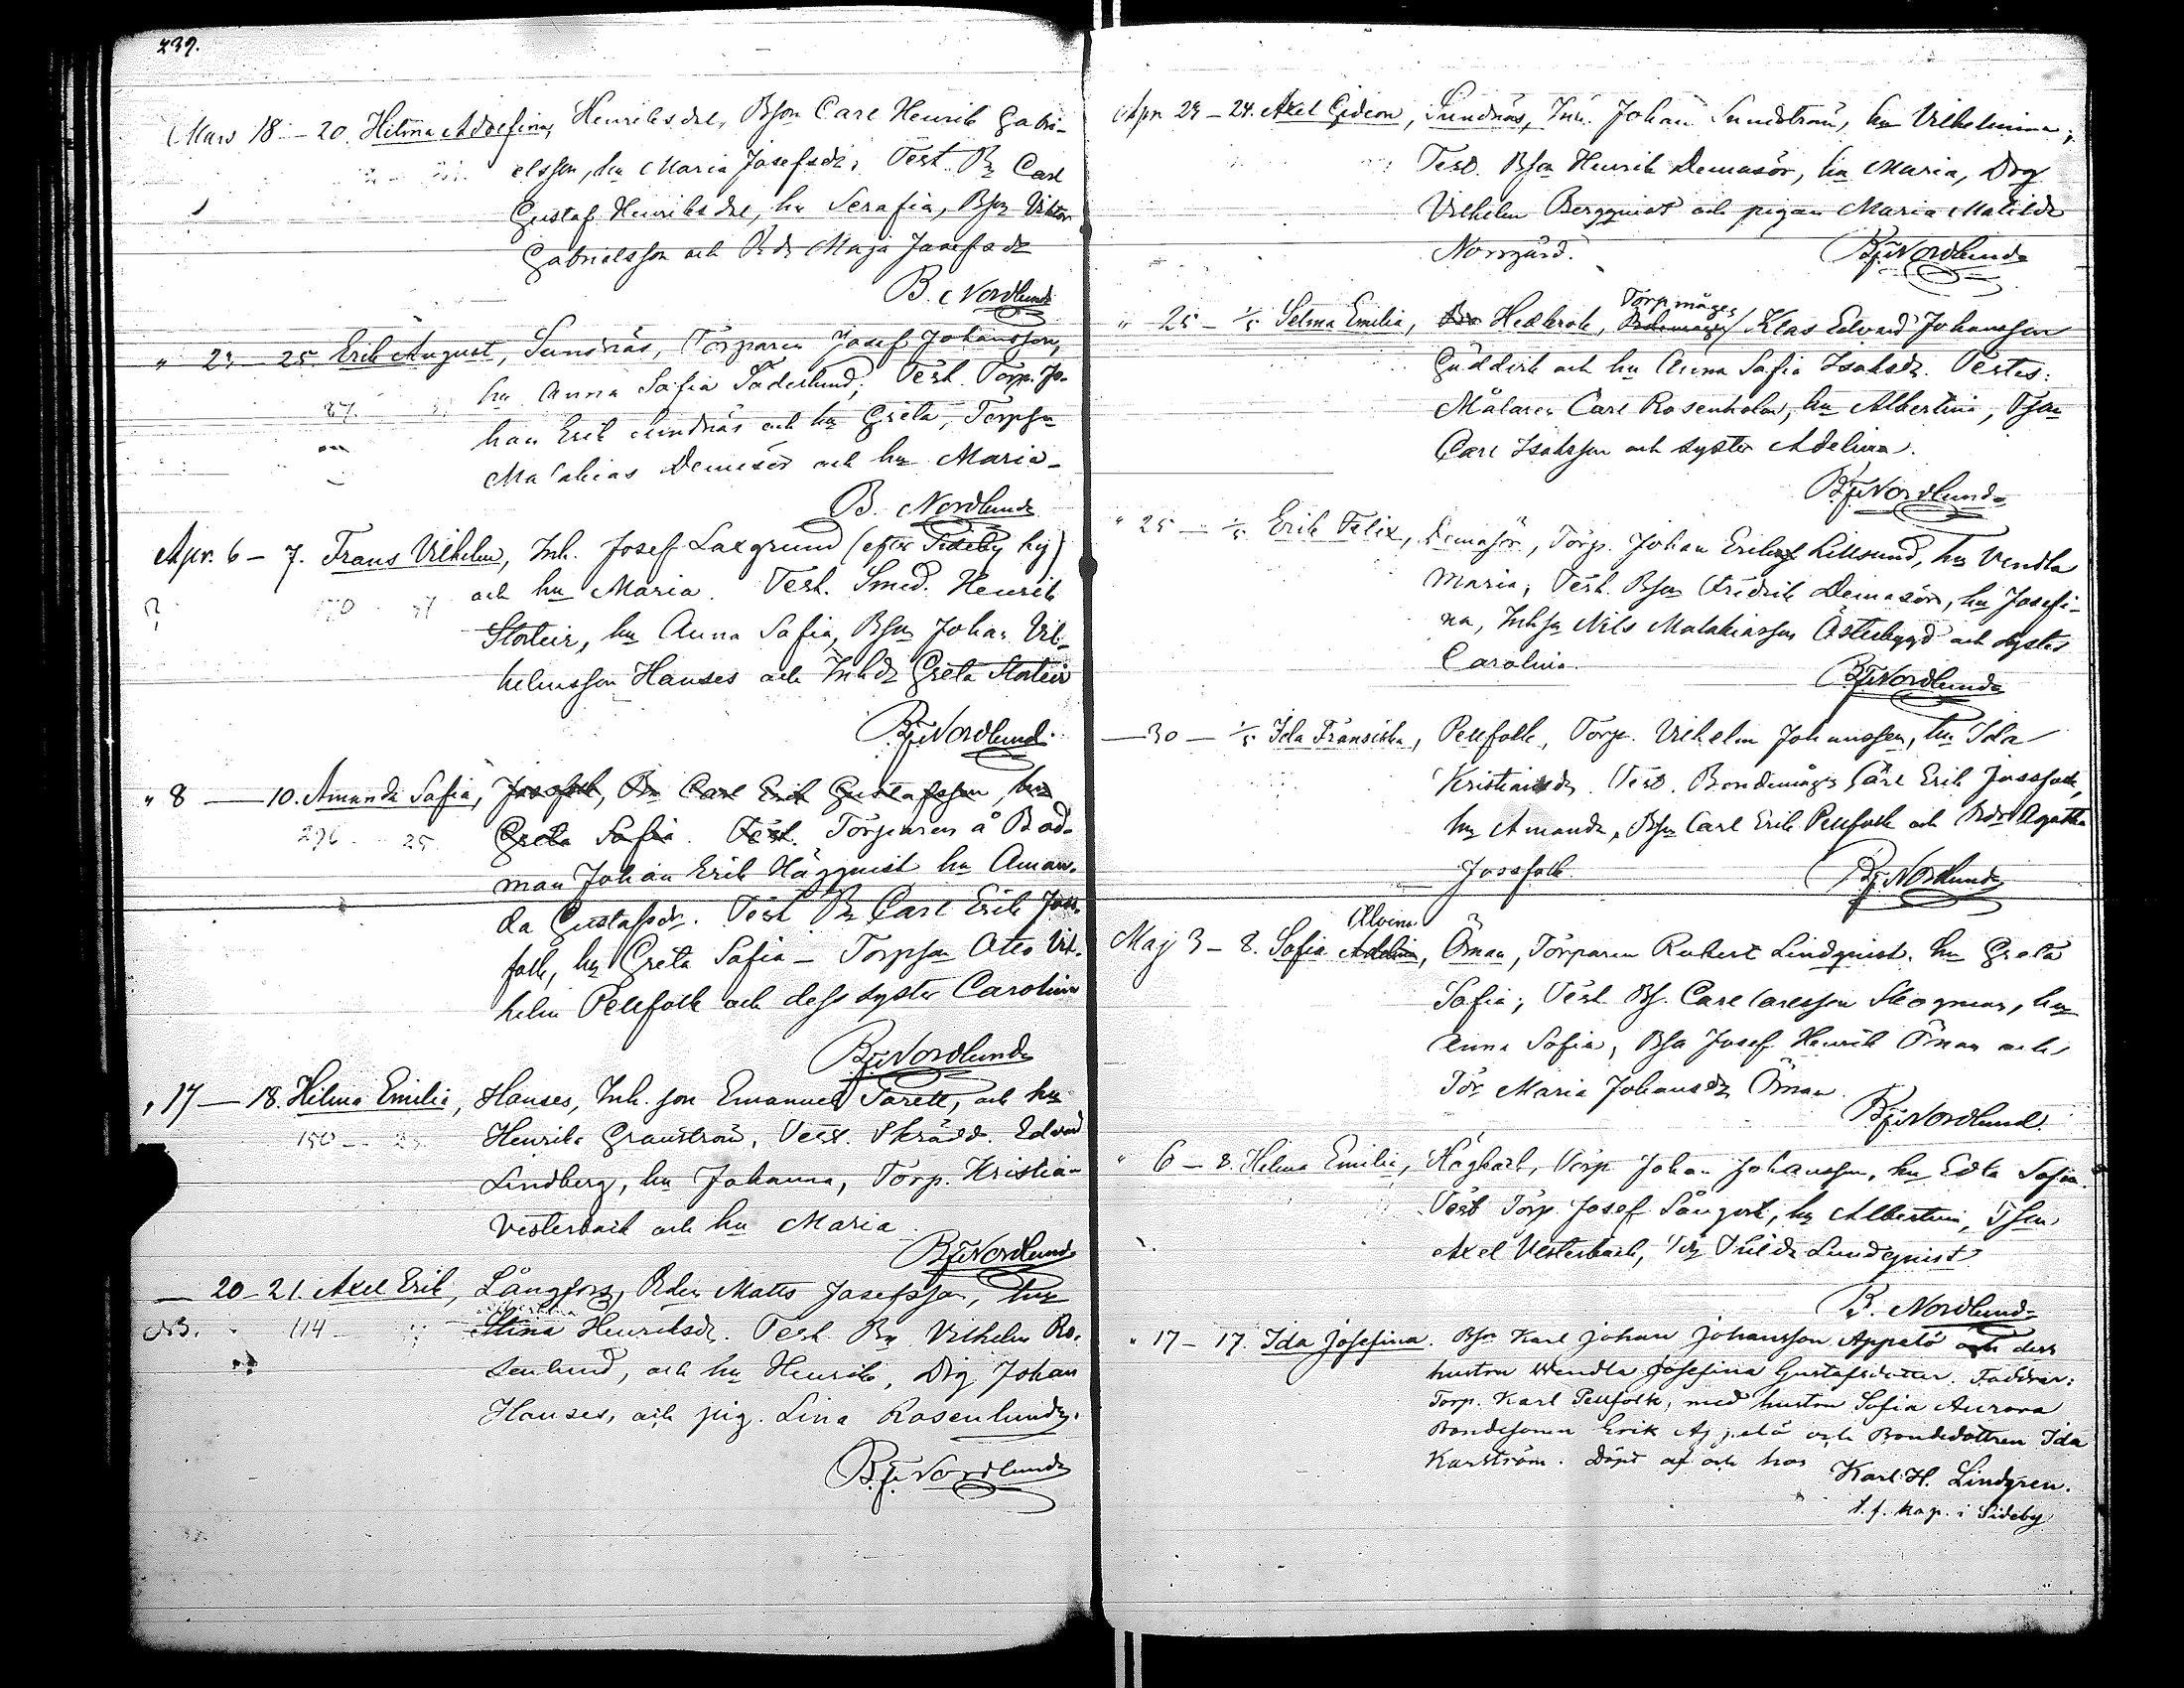 239.
Mars 18 – 20. Hilma Adolfina, Henriksdal, Bson Carl Henrik Gabri-
elsson, hu Maria Josefsdr. Test. Bn Carl
Gustaf Henriksdal, hu Serafia, Bson Viktor
Gabrielsson och Bdr Maja Josefsdr
B. Nordlund
" 23 – 25 Erik August, Sundnäs, Torparen Josef Johansson,
hu Anna Sofia Söderlund; Test. Torp. Jo-
han Erik Sundnäs och hu Greta, Torpson
Malakias Demasör och hu Maria –
B. Nordlund
Apr. 6 – 7. Frans Vilhelm, Inh. Josef Laxgrund (efter Sideby
och hu Maria. Test. Smed. Henrik
Storteir, hu Anna Sofia, Bson Johan Vil-
helmsson Hanses och Inhdr Greta Storteir
B.F. Nordlund.
" 8 — 10. Amanda Sofia, Jossfolk, Bn Carl Erik Gustafsson, hu
296 25 Greta Sofia. Test. Torparen å Bod-
man Johan Erik Häggqvist hu Aman-
da Gustafsdr. Test. Bn Carl Erik Joss-
folk, hu Greta Sofia – Torpson Otto Vil-
helm Pellfolk och dess syster Carolina
B.F. Nordlund
" 17 — 18. Hilma Emilia, Hanses, Inh. son Emanuel Tarell, och hu
150 — Henrika Granström, Test. Skrädd. Edvard
Lindberg, hu Johanna, Torp. Kristian
Vesterback och hu Maria.
B.F. Nordlund
— 20 – 21. Axel Erik, Långfors, Bden Matts Josefsson, hu
NB. 114 – Stina Henriksdr. Test. Bn Vilhelm Ro-
senlund, och hu Henrika, Drg Johan
Hanses, och pig. Lina Rosenlund.
B.F. Nordlund
Apr 23 – 24. Axel Gideon, Sundnäs, Inh. Johan Sundström, hu Vilhelmina;
Test. Bson Henrik Demasör, hu Maria, Drg
Vilhelm Bergqvist och pigan Maria Matilda
Norrgård. B.F. Nordlund
Torpmågen
" 25 – 1/5 Selma Emilia, Hedkrok, Klas Edvard Johansson
och hu Anna Sofia Isaksdr. Testes:
Målaren Carl Rosenholm, hu Albertina, Tson
Carl Isaksson och syster Adelina.
B.F. Nordlund
" 25 – 1/5 Erik Felix, Demasör, Torp. Johan Eriksson Lillsund, hu Vendla
Maria; Test. Bson Fredrik Demasör, hu Josefi-
na, Inhsn Nils Malakiasson Österbygd och syster
Carolina. B.F. Nordlund
— 30 – 1/5 Ida Fransiska, Pellfolk, Torp. Vilhelm Johansson, hu Ida
Kristiansdr. Test. Bondemågen Carl Erik Jossfolk,
hu Amanda, Bson Carl Erik Pellfolk och Bdr Agatha
Jossfolk. B.F. Nordlund
Alvina
Maj 3 – 8. Sofia Adelina, Öman, Torparen Robert Lindqvist, hu Greta
Sofia; Test. Bs. Carl Carlsson Skogman, hu
Anna Sofia, Bson Josef Henrik Öman och
Tdr Maria Johansdr Öman.
B.F. Nordlund.
" 6 – 8. Helma Emilia, Högback, Torp Johan Johansson, hu Edla Sofia.
Test Torp. Josef Långvik, hu Albertina, Tson
Axel Vesterback, Tdr Hilda Lundqvist.
B. Nordlund
" 17 – 17. Ida Josefina. Bsn Karl Johan Johansson Appelö och dess
hustru Wendla Josefina Gustafsdotter. Faddrar:
Torp. Karl Pellfolk, med hustru Sofia Aurora
Bondesonen Erik Appelö och Bondedottren Ida
Karström. Döpt af och hos Karl. H. Lindgren.
t. f. kap. i Sideby